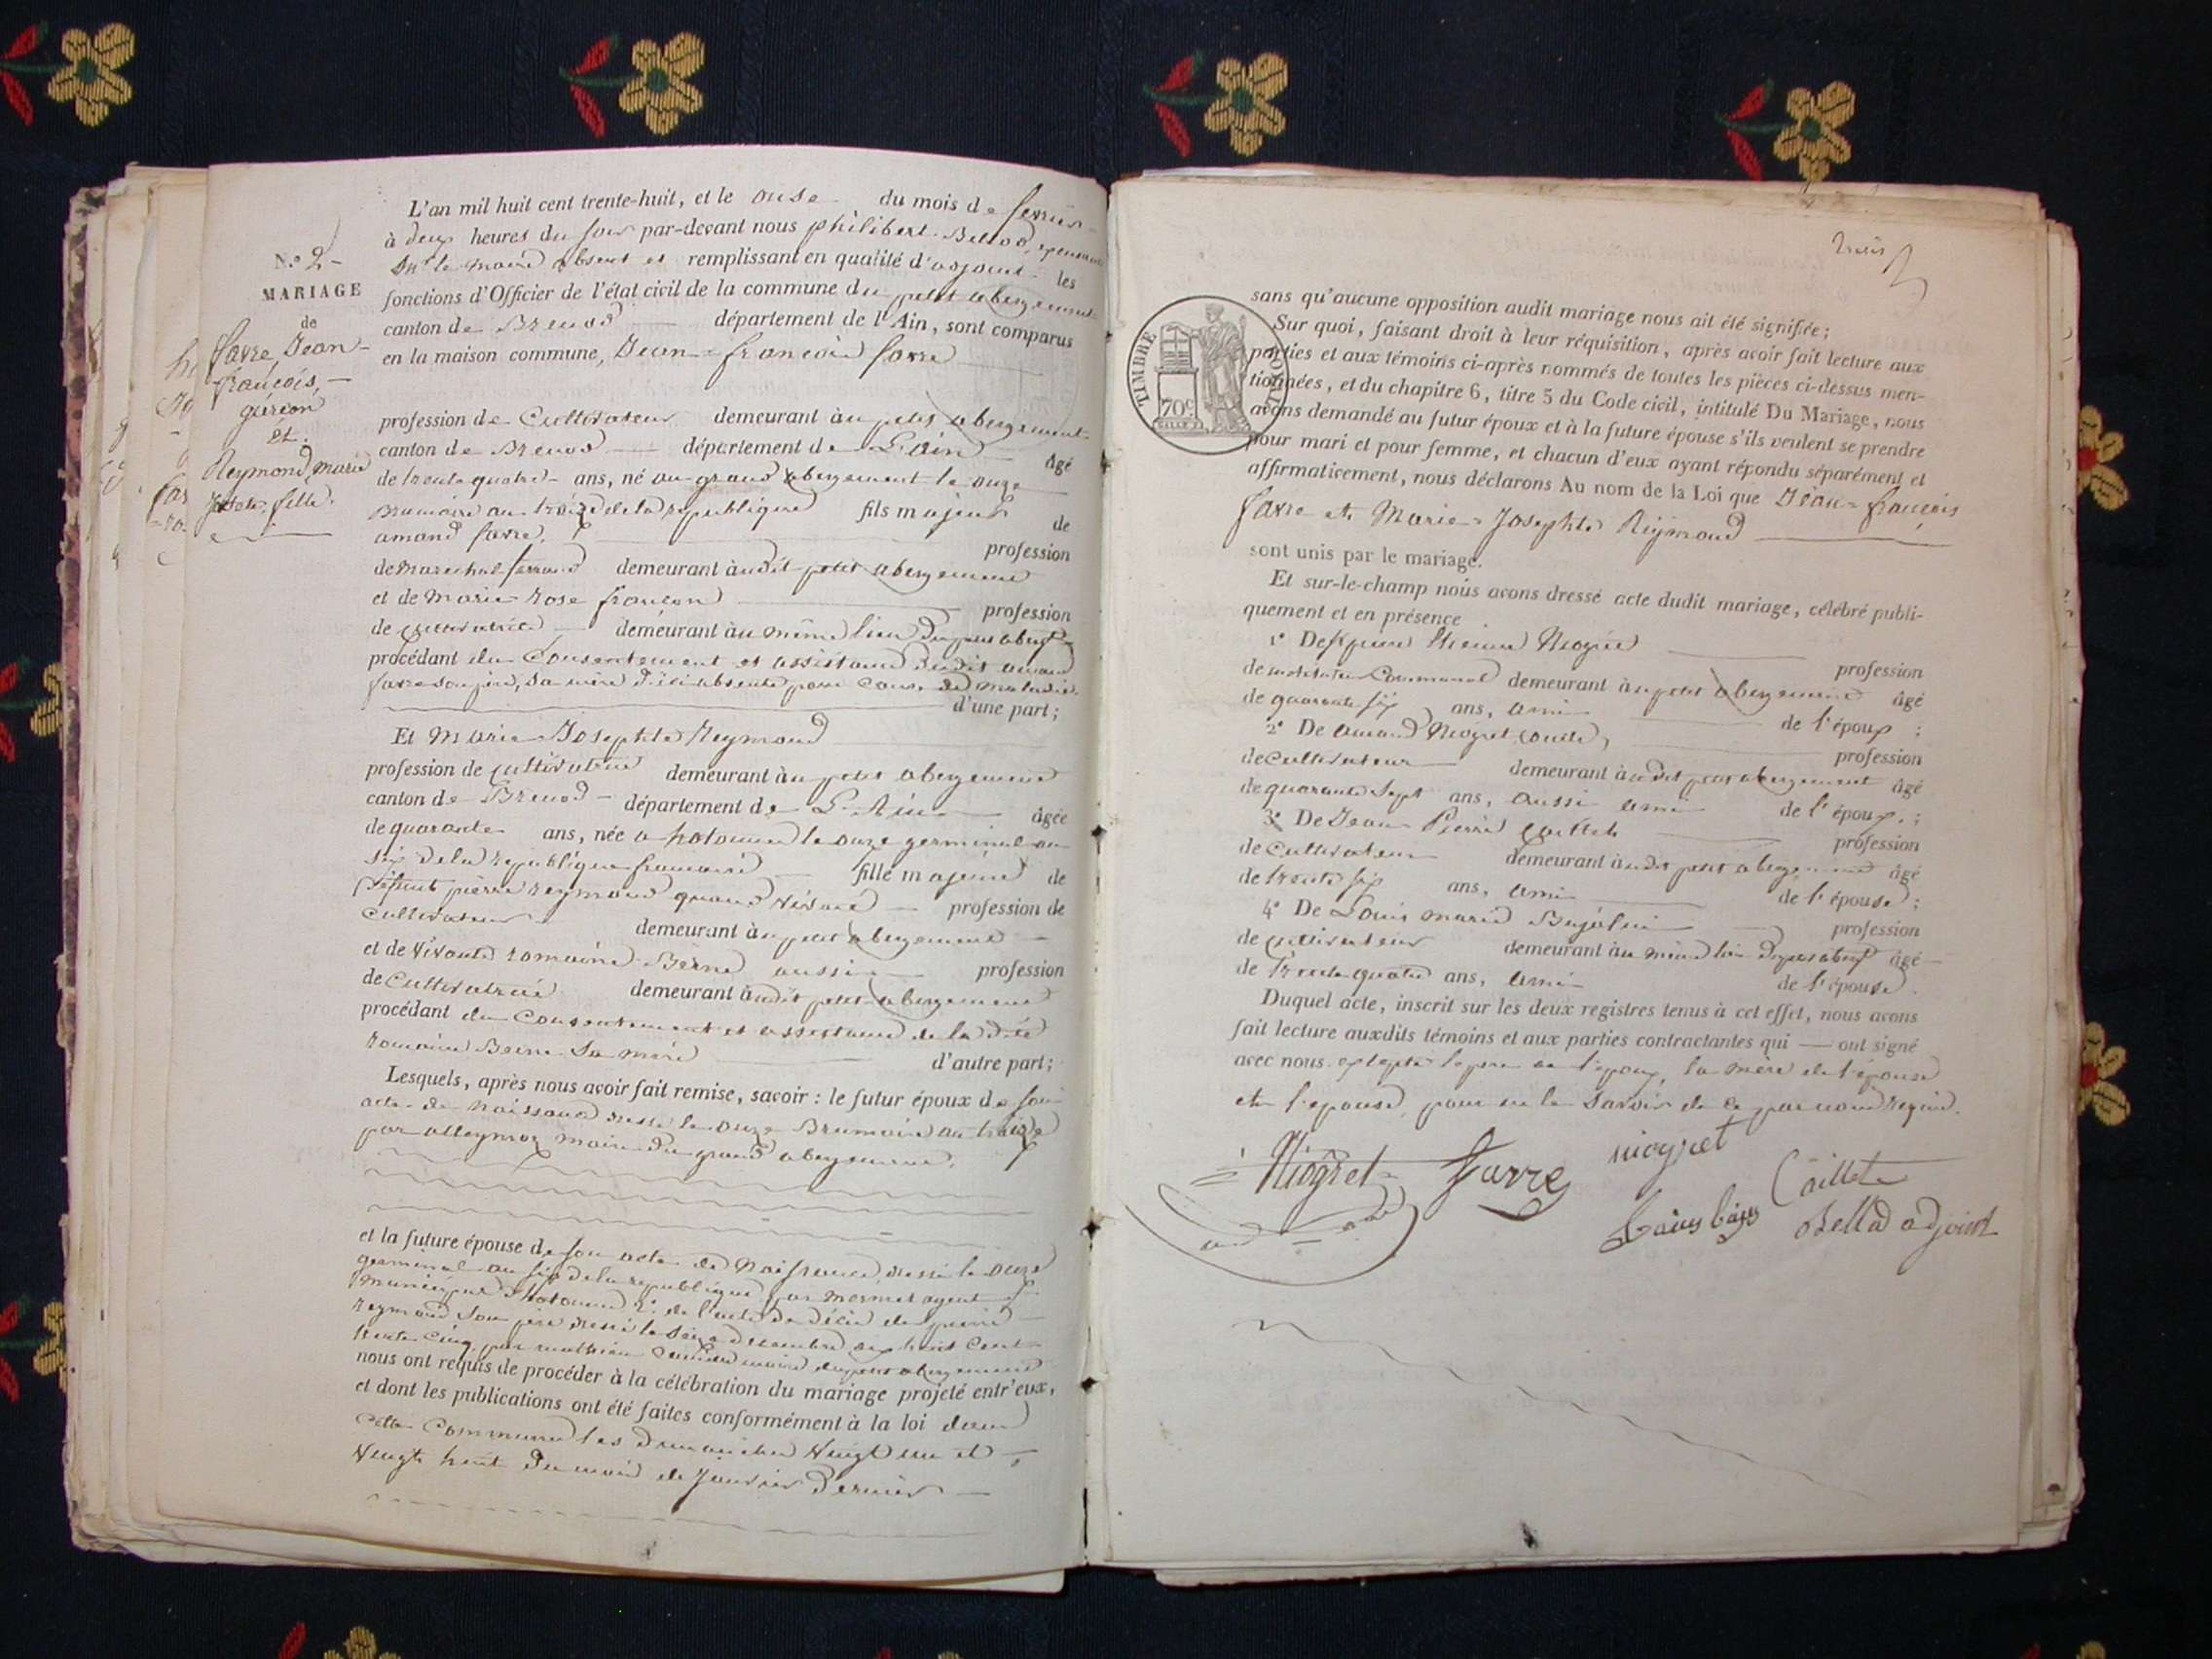 N.º 2
MARIAGE
de
favre Jean-
françois,
garçon
et
Reymond, marie
Josete, fille.
L'an mil huit cent trente-huit, et le onse du mois de fevrier
à deux heures du soir par-devant nous philibert Bellod,
le maire absent et remplissant en qualité d'adjoint les
fonctions d'Officier de l'état civil de la commune du petit abergement
canton de Brenod département de l'Ain, sont comparus
en la maison commune, Jean-françois favre
profession de Cultivateur demeurant au petit abergement
canton de Brenod département de L'ain âgé
de trente quatre ans, né au grand abergement le onze
brumaire an treize de la république fils majeur de
amand favre, profession
de marechal ferrand demeurant audit petit abergement
et de marie rose françon profession
de cultivatrice demeurant au même lieu du petit aberg
procédant du Consentement et assistance dudit amand
favre son père, sa mère absente pour cause de maladie
d'une part;
Et Marie Josephte Reymond
profession de cultivatrice demeurant au petit abergement
canton de Brenod département de L'Ain âgée
de quarante ans, née a hotonne le onze germinal an
six de la république française fille majeure de
défunt pierre reymond quand vivait profession de
cultivateur demeurant au petit abergement
et de vivante romaine Berne aussi profession
de Cultivatrice demeurant audit petit abergement
procédant du Consentement et assistance de la dite
romaine Berne sa mère d'autre part;
Lesquels, après nous avoir fait remise, savoir: le futur époux de son
acte de naissance dressé le onze Brumaire an treize
par maire du grand abergement,
et la future épouse de son acte de naissance dressé le onze
germinal an six de la république par mermet agent
municipal d'hotonne 2º de l'acte de décès de pierre
reymond son père dressé le seize decembre dix huit cent
trente cinq par mathieu maire du petit abergement
nous ont requis de procéder à la célébration du mariage projeté entr'eux,
et dont les publications ont été faites conformément à la loi dans
cette commune les dimanches vingt un et
vingt huit du mois de janvier dernier
trois
TIMBRE ROYAL
70c
sans qu'aucune opposition audit mariage nous ait été signifiée;
Sur quoi, faisant droit à leur réquisition, après avoir fait lecture aux
parties et aux témoins ci-après nommés de toutes les pièces ci-dessus men-
tionnées, et du chapitre 6, titre 5 du Code civil, intitulé Du Mariage, nous
avons demandé au futur époux et à la future épouse s'ils veulent se prendre
pour mari et pour femme, et chacun d'eux ayant répondu séparément et
affirmativement, nous déclarons Au nom de la Loi que Jean-françois
favre et Marie-Josephte Reymond
sont unis par le mariage.
Et sur-le-champ nous avons dressé acte dudit mariage, célébré publi-
quement et en présence
1º De Niogret profession
de instituteur Communal demeurant au petit abergement âgé
de quarante six ans, ami de l'époux;
2º De amand Niogret profession
de cultivateur demeurant audit petit abergement âgé
de quarante sept ans, aussi ami de l'époux;
3º De Jean Pierre Caillet profession
de cultivateur demeurant audit petit abergement âgé
de trente six ans, ami de l'épouse;
4º De Louis marie profession
de cultivateur demeurant au même lieu du petit aberg âgé
de trente quatre ans, ami de l'épouse.
Duquel acte, inscrit sur les deux registres tenus à cet effet, nous avons
fait lecture auxdits témoins et aux parties contractantes qui ont signé
avec nous excepté le père de l'époux, la mère de l'épouse
et l'épouse, pour ne le savoir de ce par nous requis.
Niogret Favre niogret
Caillet
Bellod adjoint